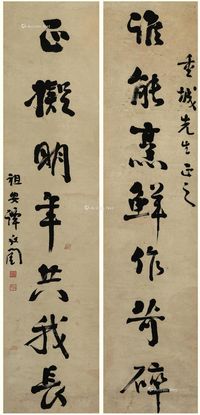 垂城先生正之
谁能烹鲜作苛碎
正拟明年共我长
祖安谭延闿